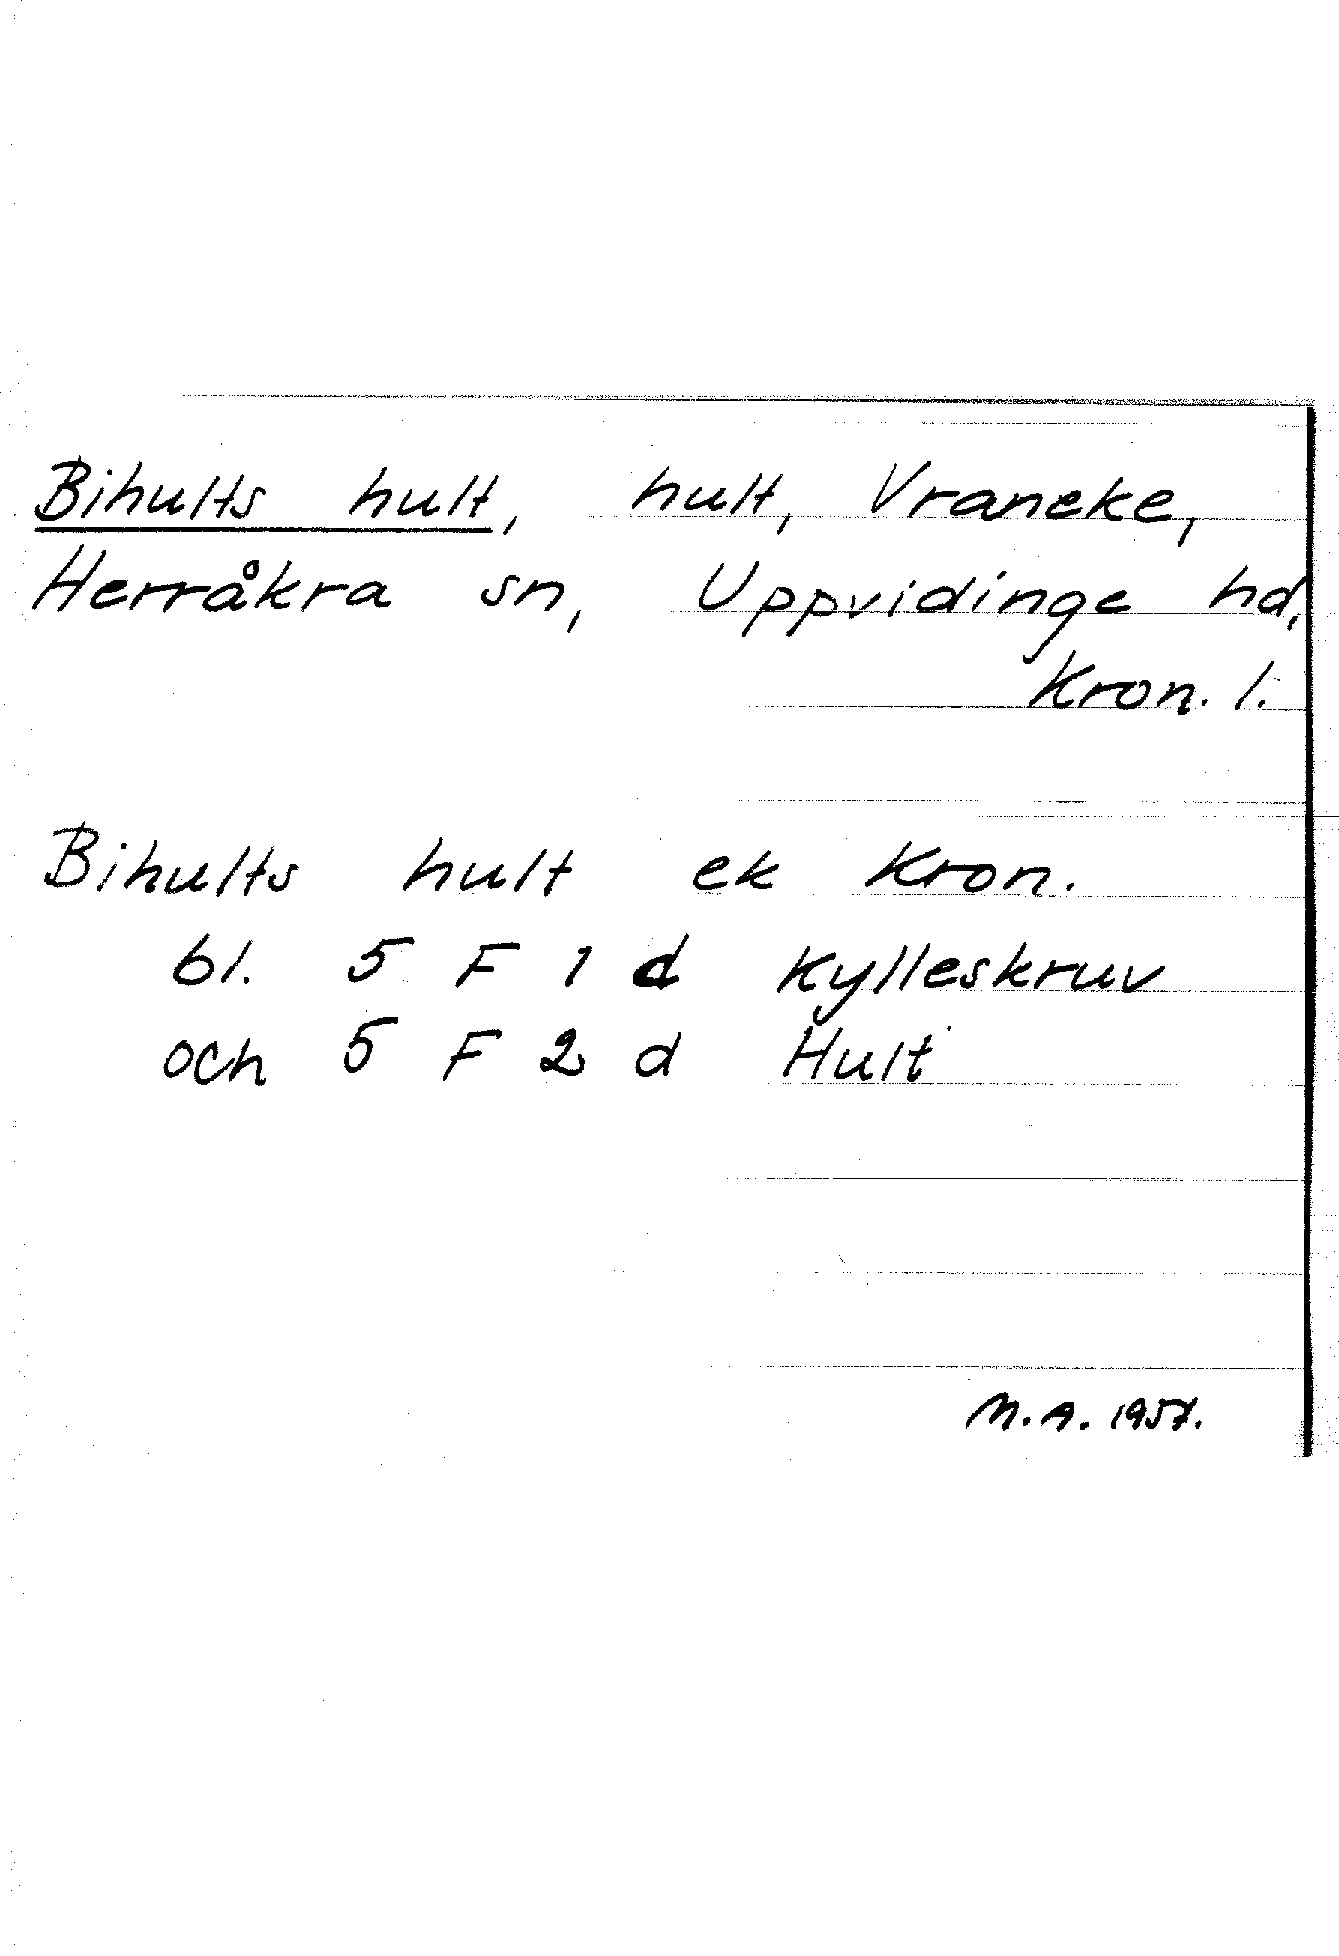 Bihults hult, hult, Vraneke,
Herråkra sn, Uppvidinge hd,
Kron. l.
Bihults hult ek Kron.
bl. 5 F 1 d Kylleskruv
och 5 F 2 d Hult
M.A. 1957.